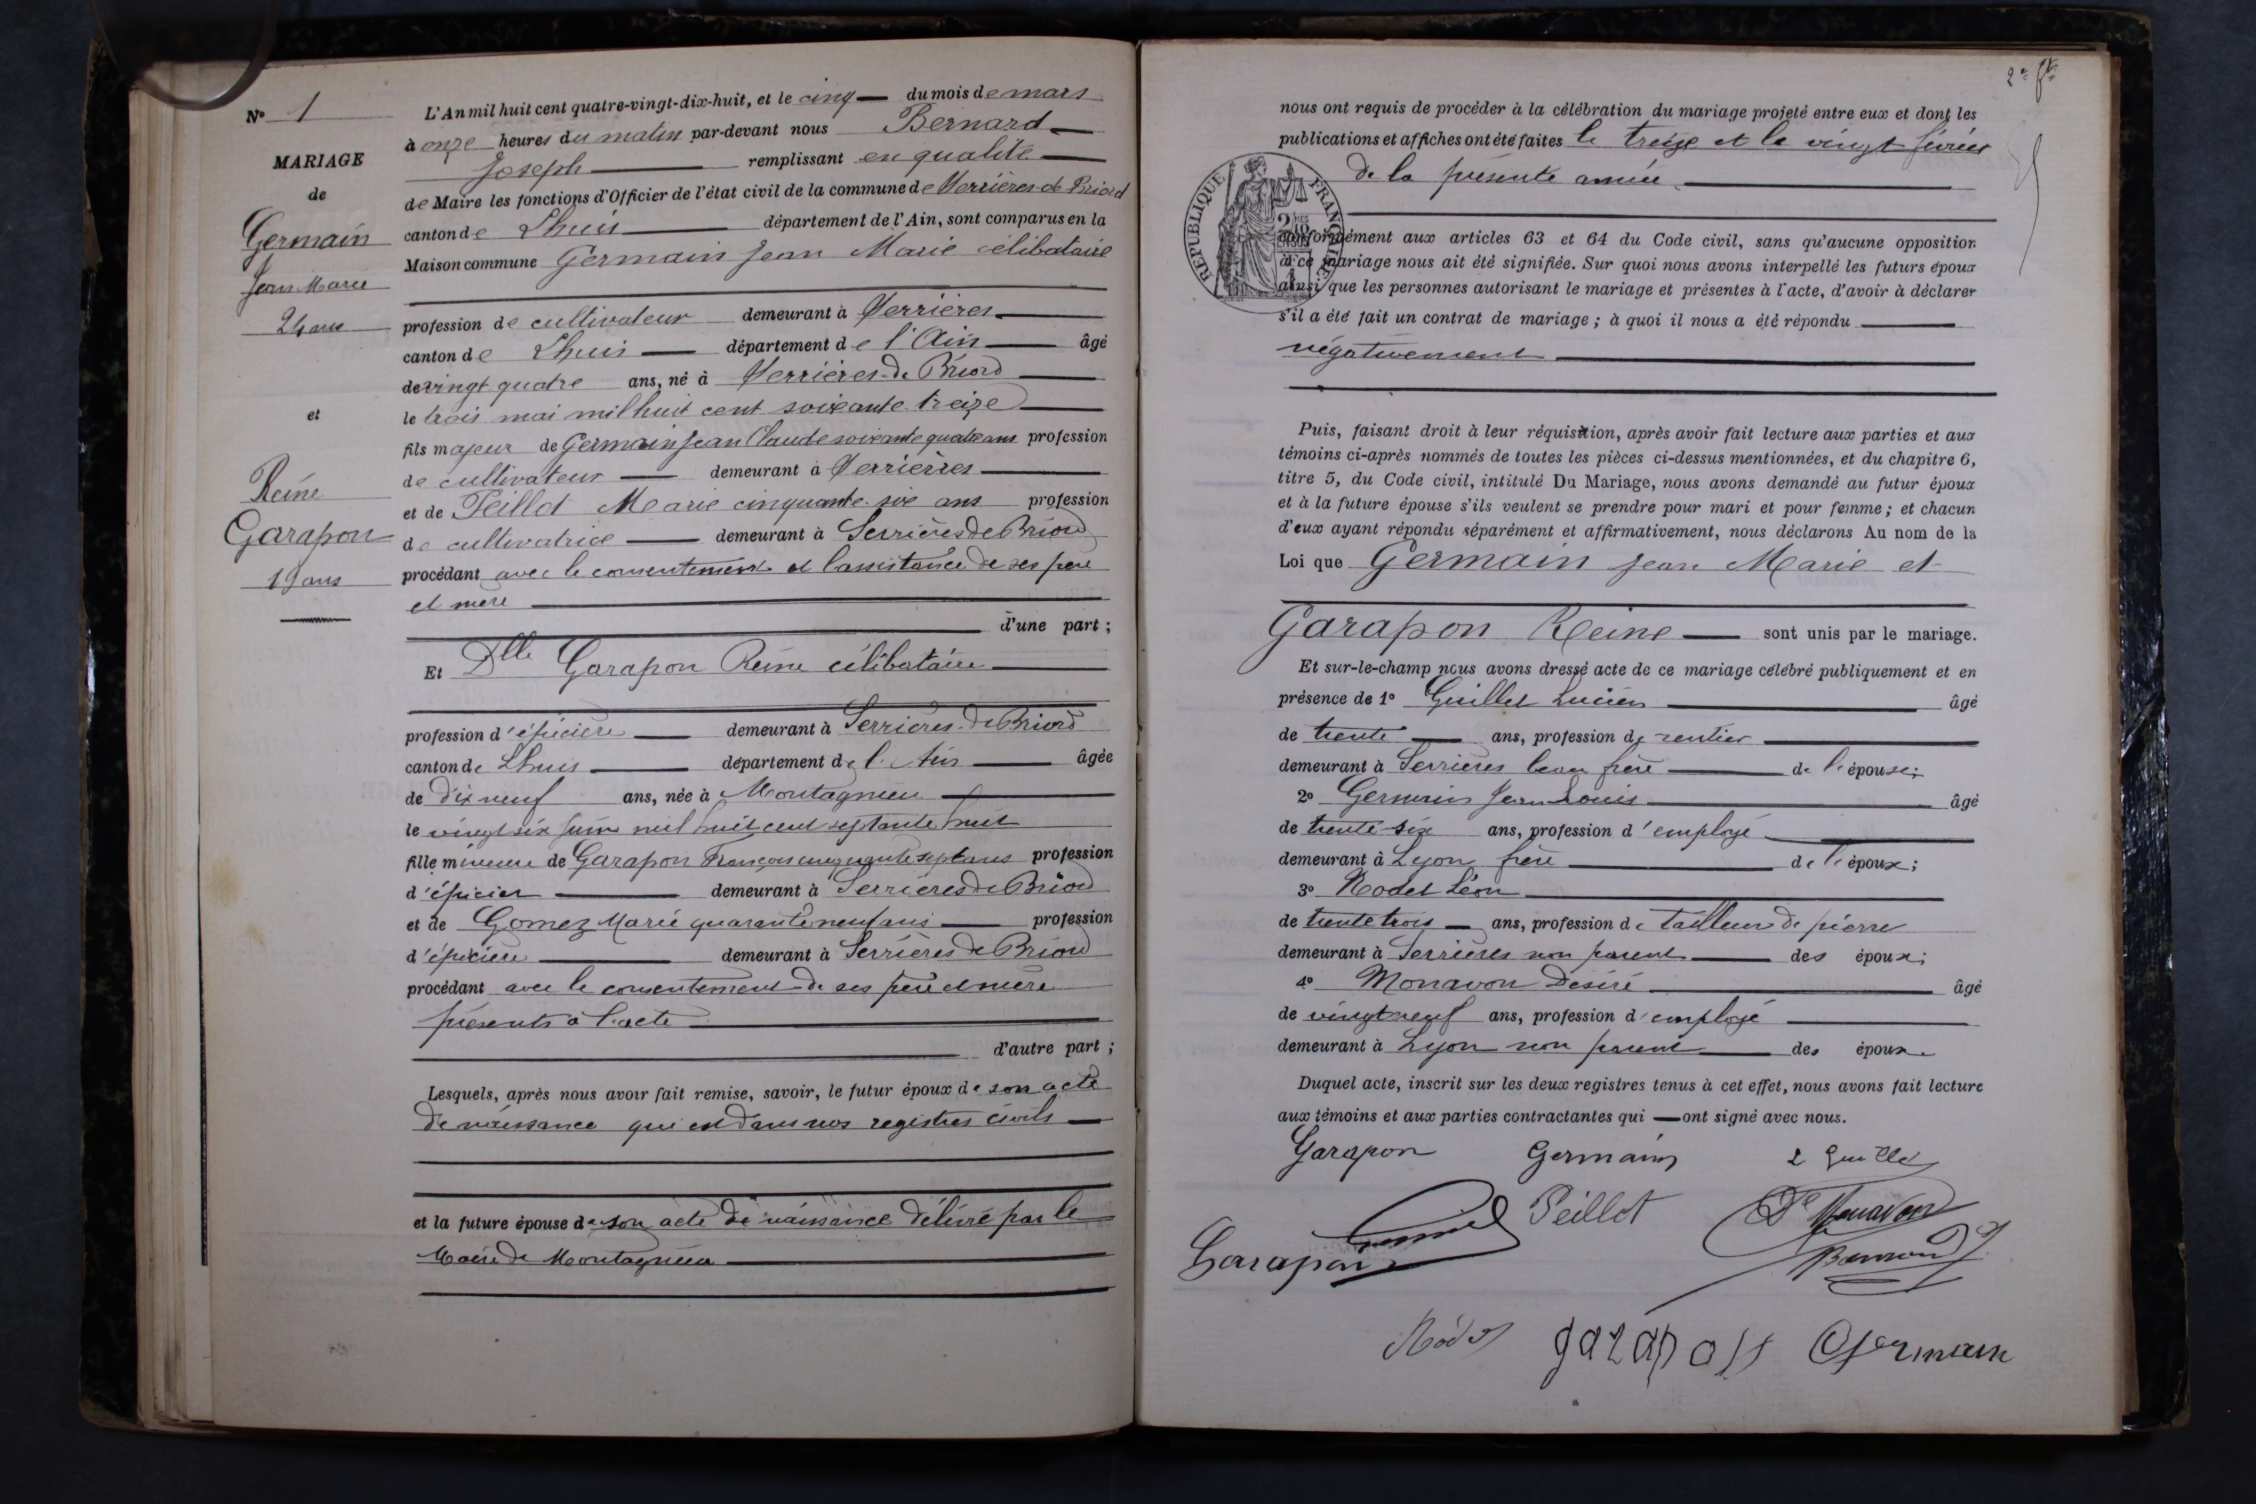 N° 1
MARIAGE
de
Germain
Jean Marie
24 ans
et
Reine
Garapon
19 ans
L'An mil huit cent quatre-vingt-dix-huit, et le cinq du mois de mars
à onze heures du matin par-devant nous Bernard
Joseph remplissant en qualité
de Maire les fonctions d'Officier de l'état civil de la commune de Serrières-de Briord
canton de Lhuis département de l'Ain, sont comparus en la
Maison commune Germain Jean Marie célibataire
profession de cultivateur demeurant à Serrières
canton de Lhuis département de l'Ain âgé
de vingt quatre ans, né à Serrières-de Briord
le trois mai mil huit cent soixante treize
fils majeur de Germain Jean Claude soixante quatre ans profession
de cultivateur demeurant à Serrières
et de Peillot Marie cinquante-six ans profession
de cultivatrice demeurant à Serrières de Briord
procédant avec le consentement et l'assistance de ses père
et mère
d'une part ;
Et Dlle Garapon Reine célibataire
profession d'épicière demeurant à Serrières-de Briord
canton de Lhuis département de l'Ain âgée
de dix neuf ans, née à Montagnieu
le vingt six juin mil huit cent septante huit
fille mineure de Garapon François cinquante sept ans profession
d'épicier demeurant à Serrières de Briord
et de Gomez Marie quarante neuf ans profession
d'épicière demeurant à Serrières de Briord
procédant avec le consentement de ses père et mère
présents à l'acte
d'autre part ;
Lesquels, après nous avoir fait remise, savoir, le futur époux de son acte
de naissance qui est dans nos registres civils
et la future épouse de son acte de naissance délivré par le
Maire de Montagnieu
2e ft
nous ont requis de procéder à la célébration du mariage projeté entre eux et dont les
publications et affiches ont été faites le treize et le vingt février
de la présente année
RÉPUBLIQUE FRANÇAISE
conformément aux articles 63 et 64 du Code civil, sans qu'aucune opposition
à ce mariage nous ait été signifiée. Sur quoi nous avons interpellé les futurs époux
ainsi que les personnes autorisant le mariage et présentes à l'acte, d'avoir à déclarer
s'il a été fait un contrat de mariage ; à quoi il nous a été répondu
négativement
Puis, faisant droit à leur réquisition, après avoir fait lecture aux parties et aux
témoins ci-après nommés de toutes les pièces ci-dessus mentionnées, et du chapitre 6,
titre 5, du Code civil, intitulé Du Mariage, nous avons demandé au futur époux
et à la future épouse s'ils veulent se prendre pour mari et pour femme ; et chacun
d'eux ayant répondu séparément et affirmativement, nous déclarons Au nom de la
Loi que Germain Jean Marie et
Garapon Reine sont unis par le mariage.
Et sur-le-champ nous avons dressé acte de ce mariage célébré publiquement et en
présence de 1° Guillet Lucien âgé
de trente ans, profession de rentier
demeurant à Serrières beau frère de l'épouse ;
2° Germain Jean Louis âgé
de trente-six ans, profession d'employé
demeurant à Lyon frère de l'époux ;
3° Rodet Léon
de trente trois ans, profession de tailleur de pierre
demeurant à Serrières non parent des époux ;
4° Monavon Désiré âgé
de vingt neuf ans, profession d'employé
demeurant à Lyon non parent des époux.
Duquel acte, inscrit sur les deux registres tenus à cet effet, nous avons fait lecture
aux témoins et aux parties contractantes qui ont signé avec nous.
Garapon Germain L Guillet
Peillot De Monavon
Garapon Bernard J
Rodet garapon Germain